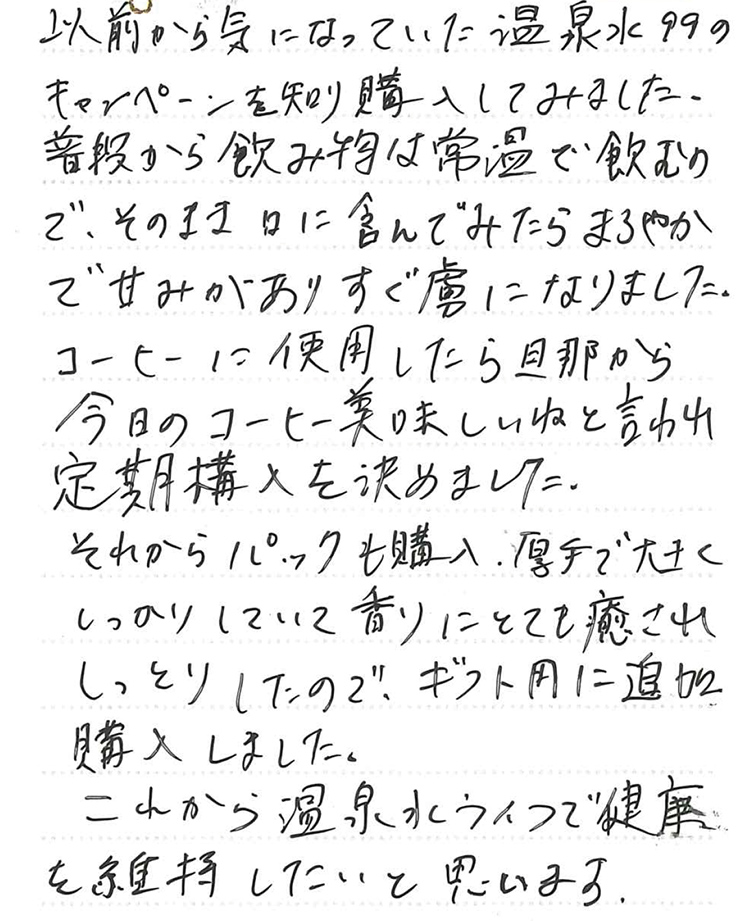 以前から気になっていた温泉水99の
キャンペーンを知り購入してみました.
普段から飲み物は常温で飲むの
で、そのまま口に含んでみたらまろやか
で甘みがありすぐ虜になりました.
コーヒーに使用したら旦那から
今日のコーヒー美味しいねと言われ
定期構入を決めました.
それからパックも購入.厚手で大きく
しっかりしていて香りにとても癒され
しっとりしたので、ギフト用に追加
購入しました。
これから温泉水ライフで健康
を維持したいと思います.